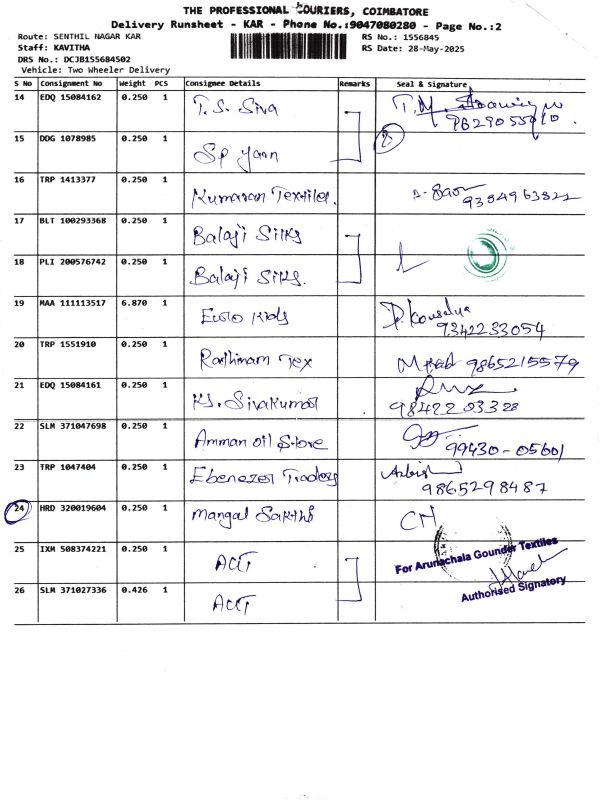 THE PROFESSIONAL COURIERS, COIMBATORE
Delivery Runsheet - KAR - Phone No.:9047080280 - Page No.:2
Route: SENTHIL NAGAR KAR
RS No.: 1556845
Staff: KAVITHA
RS Date: 28-May-2025
DRS No.: DCJB155684502
Vehicle: Two Wheeler Delivery
S No Consignment No Weight PCS Consignee Details Remarks Seal & Signature
14 EDQ 15084162 0.250 1 T.S. Siva
15 DDG 1078985 0.250 1 SP Yarn
16 TRP 1413377 0.250 1 Kumaran Textiles.
17 BLT 100293368 0.250 1 Balaji Silks
18 PLI 200576742 0.250 1 Balaji Silks.
19 MAA 111113517 6.870 1 Euro Kids P. Kousalya
9342233054
20 TRP 1551910 0.250 1 Rathinam Tex 9865215579
21 EDQ 15084161 0.250 1 Sivakumar
22 SLM 371047698 0.250 1 Amman Oil Store
99430-05601
23 TRP 1047404 0.250 1 Ebenezer Traders
9865298487
24 HRD 320019604 0.250 1 Mangal Sakthi CH
25 IXM 508374221 0.250 1 For Arunachala Gounder Textiles
26 SLM 371027336 0.426 1 Authorised Signatory